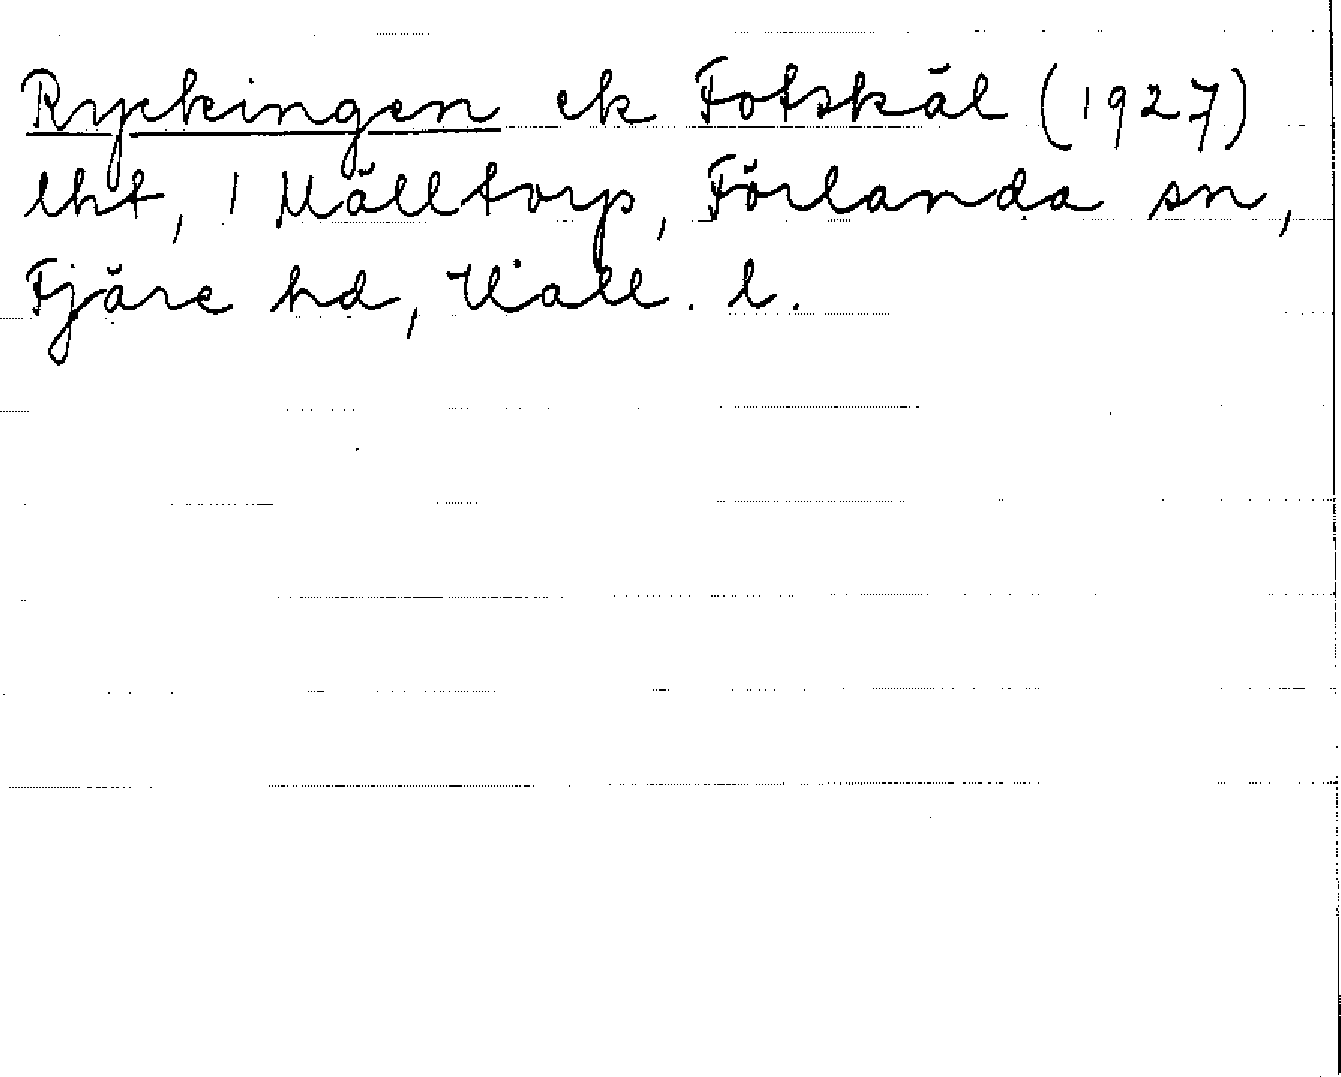 Ryckingen ek Fotskäl (1927)
lht, 1 Mälltorp, Förlanda sn,
Fjäre hd, Hall. l.